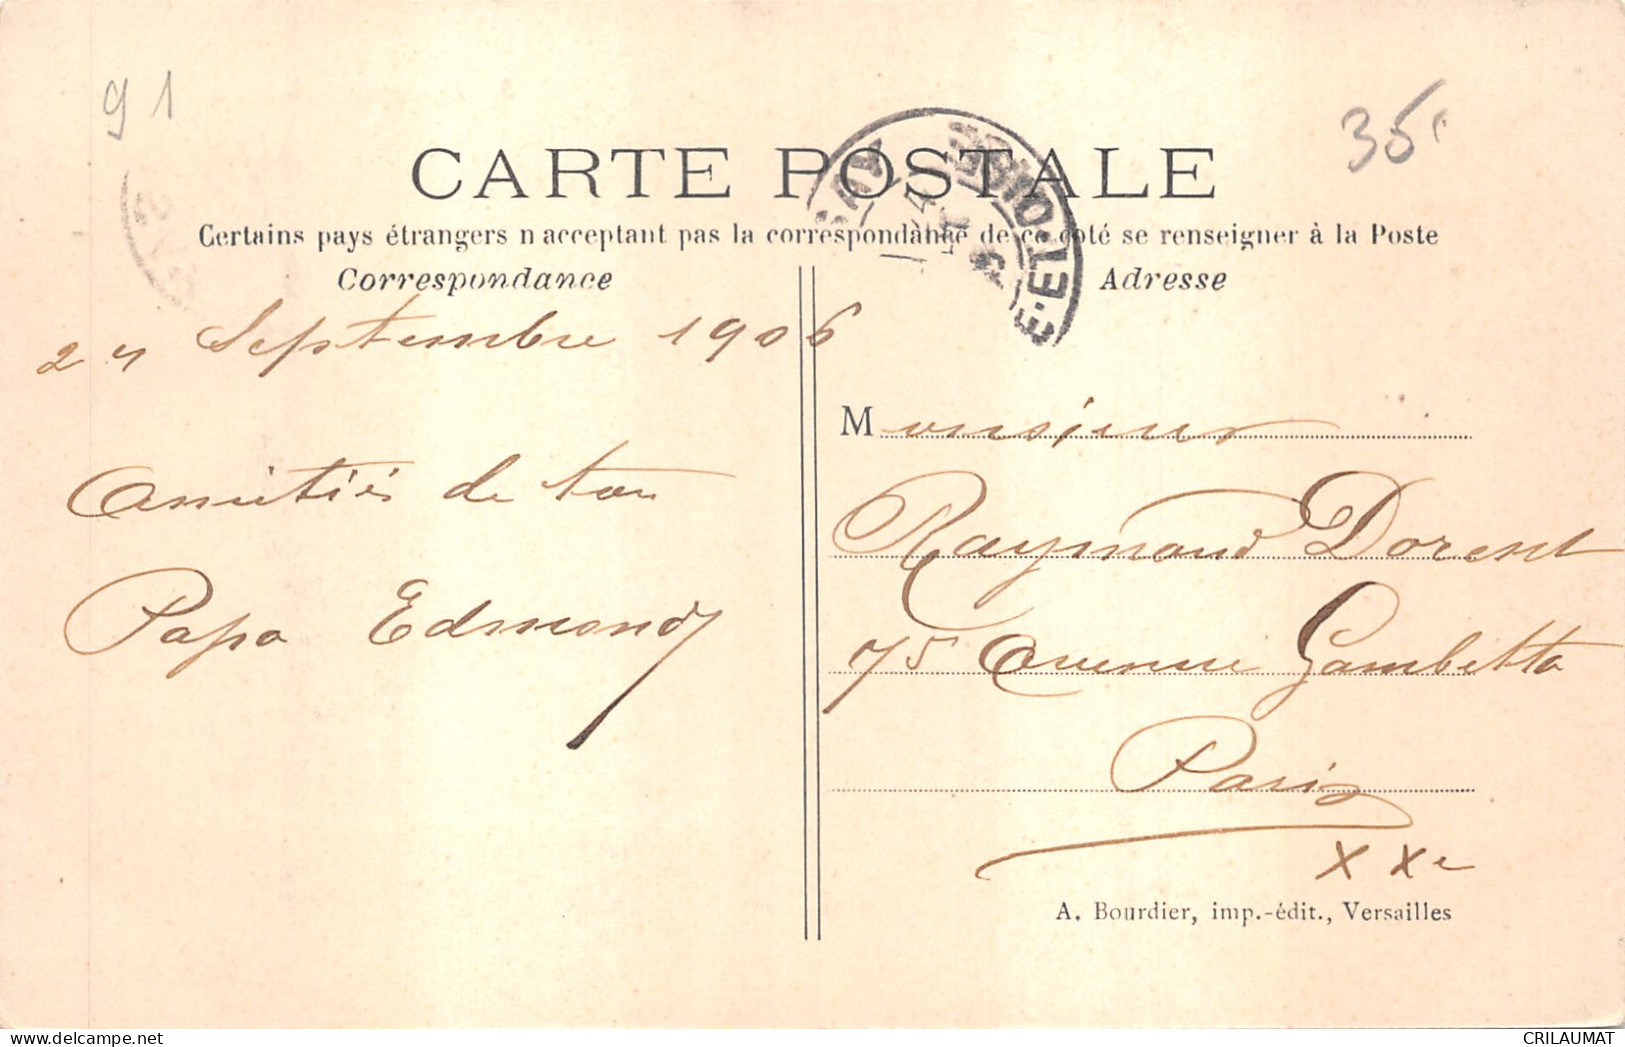 91
35
CARTE POSTALE
Certains pays étrangers n acceptant pas la correspondance de ce côté se renseigner à la Poste
Correspondance
Adresse
24 Septembre 1906
Amitiés de ton
Papa Edmond
Monsieur
Raymond Dorent
75 Avenue Gambetta
Paris
XXe
A. Bourdier, imp.-édit., Versailles
E-ET-OISE
CRILAUMAT